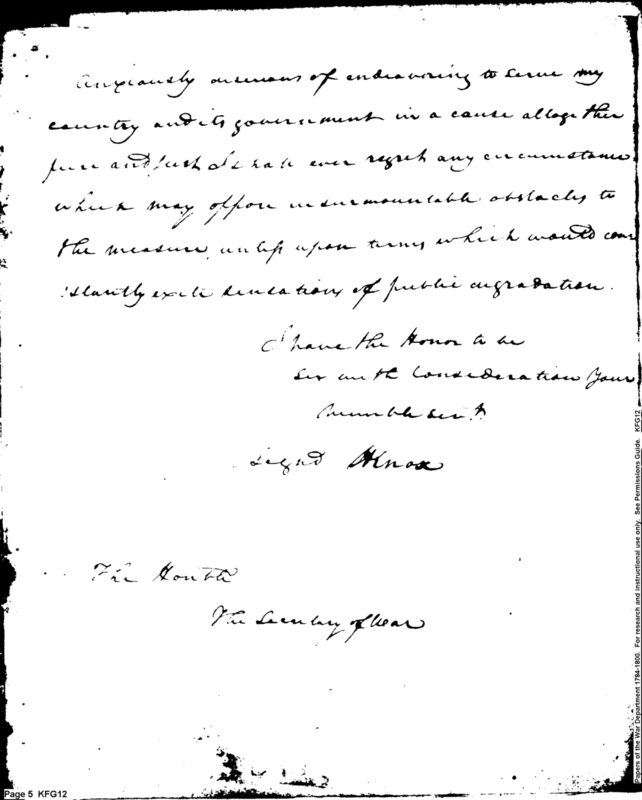 Anxiously desirous of endeavoring to serve my
country and its government in a cause altogether
pure and just I shall ever regret any circumstance
which may oppose insurmountable obstacles to
the measure, unless upon terms which would con
stantly excite sensations of public degradation.
I have the Honor to be
Sir with Consideration Your
humble servt
Signd HKnox
The Honble
The Secretary of War
Page 5 KFG12
Papers of the War Department 1784-1800. For research and instructional use only. See Permissions Guide. KFG12